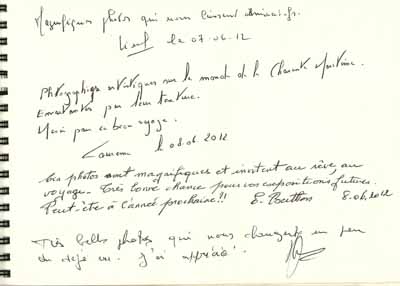 Magnifiques photos qui nous laissent admiratifs.
le 07.06.12
Photographies artistiques sur le monde de la Charente Maritime.
par leur
Merci pour ce beau voyage.
le 08.06.2012
Vos photos sont magnifiques et invitent au rêve, au
voyage. Très bonne chance pour vos expositions futures.
Peut-être à l'année prochaine!! 8.06.2012
Très belles photos qui nous changent un peu
du déjà vu. J'ai apprécié.